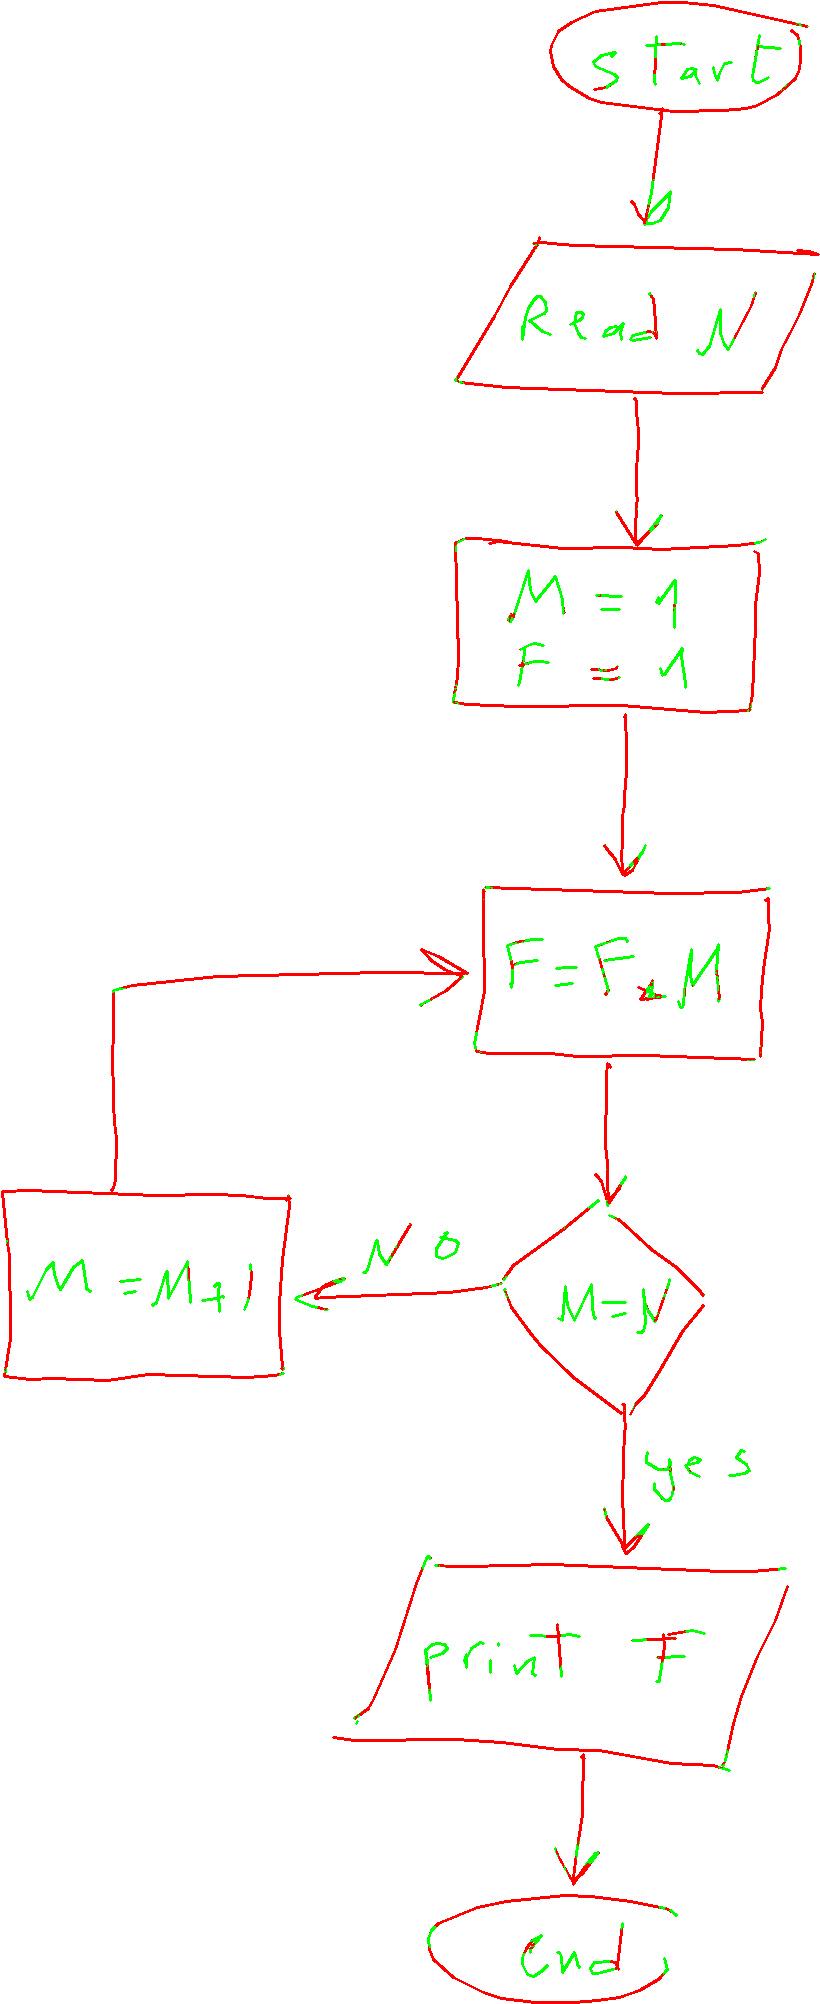 start
Read N
M = 1
F = 1
F = F * M
No
M = M + 1
M = N
yes
print F
end